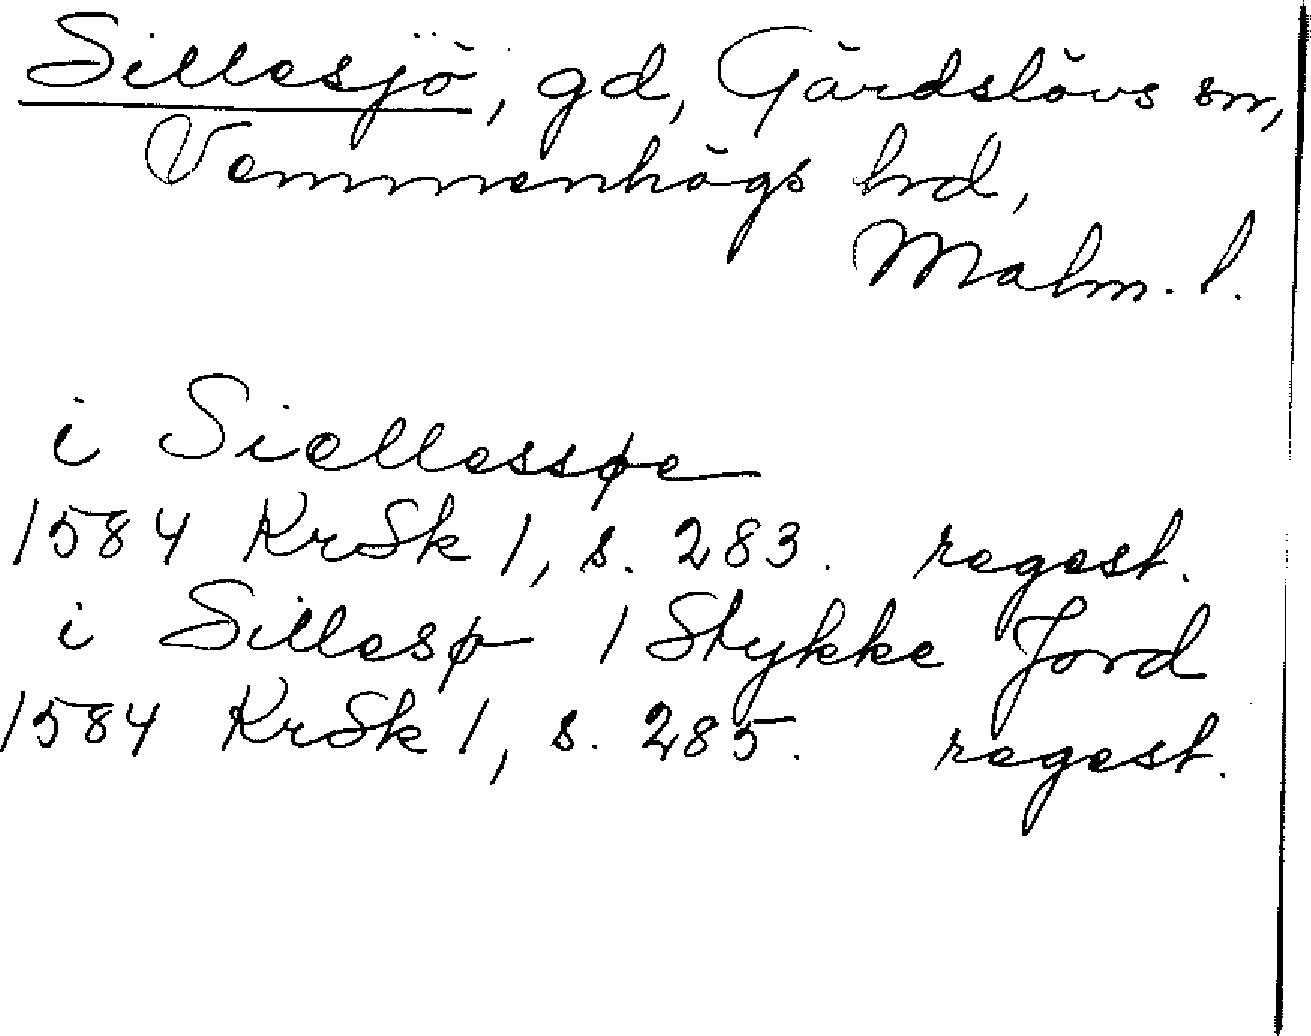 Sillesjö, gd, Gärdslövs sn,
Vemmenhögs hd,
Malm. l.
i Siellessøe
1584 KrSk 1, s. 283. regest.
i Sillesø 1 Stykke Jord
1584 KrSk 1, s. 285. regest.